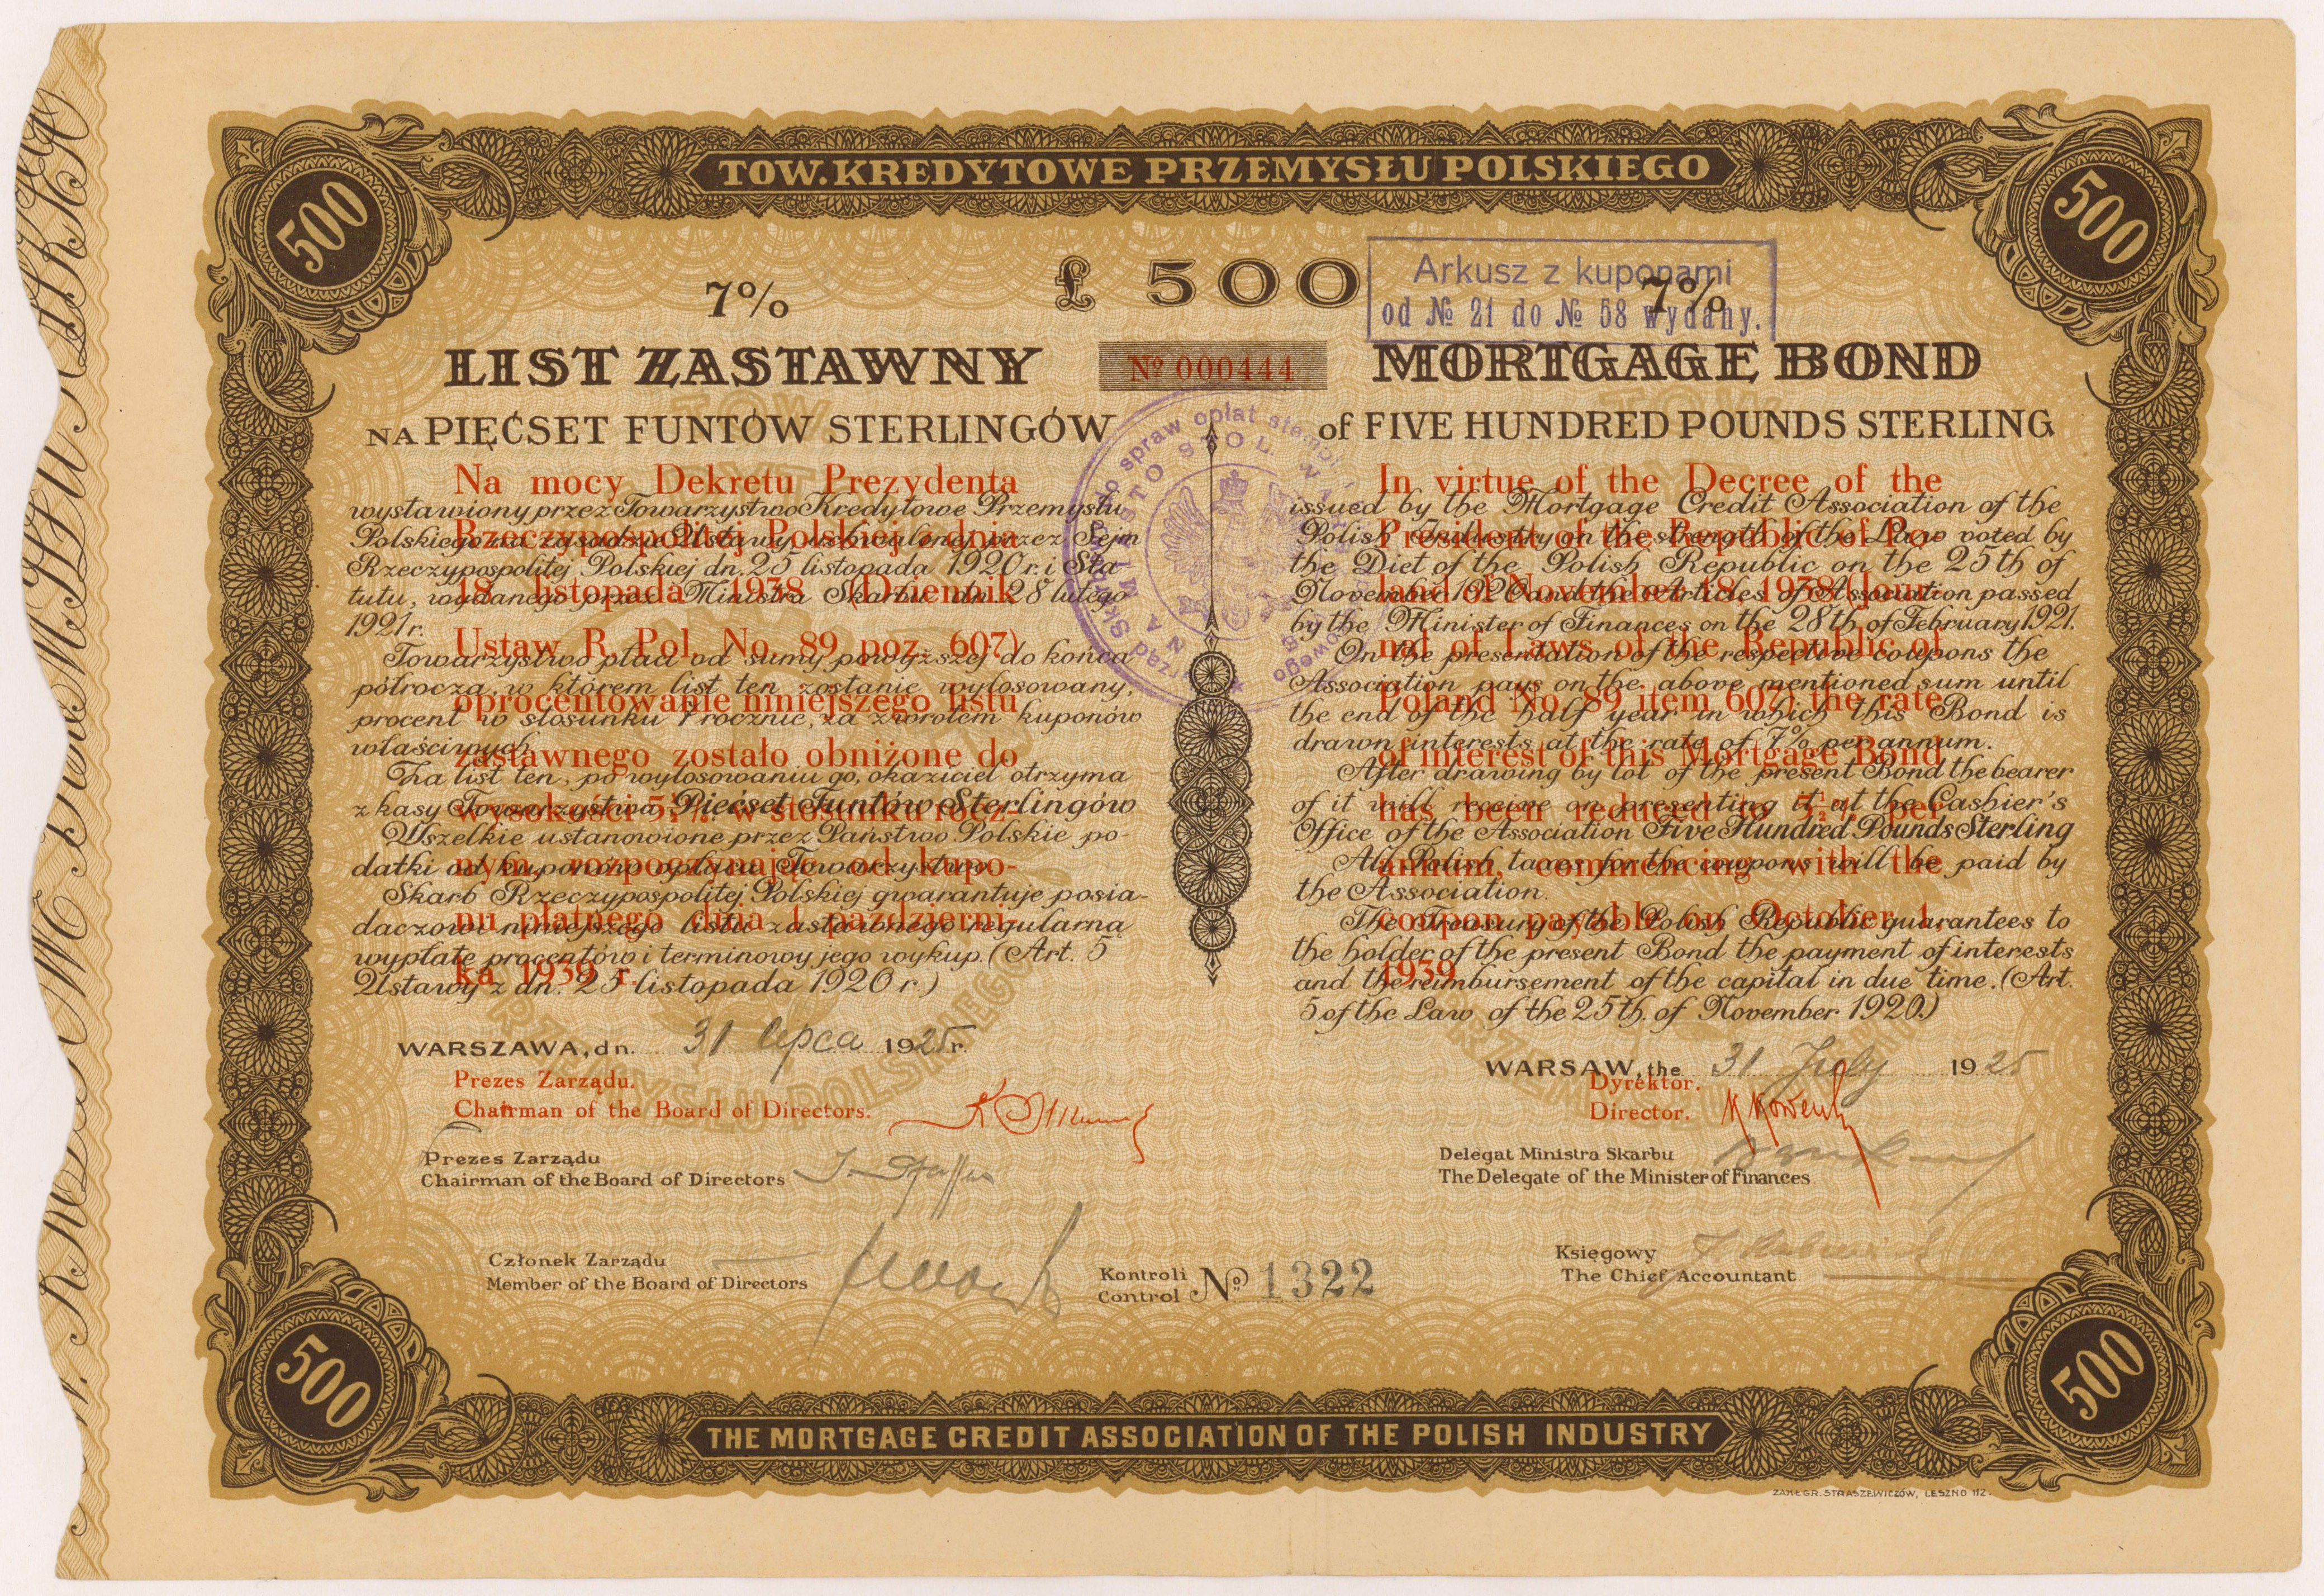 TOW. KREDYTOWE PRZEMYSŁU POLSKIEGO
500
500
£ 500
Arkusz z kuponami
od № 21 do № 58 wydany.
7%
7%
LIST ZASTAWNY
№ 000444
MORTGAGE BOND
NA PIĘĆSET FUNTÓW STERLINGÓW
of FIVE HUNDRED POUNDS STERLING
Na mocy Dekretu Prezydenta
Rzeczypospolitej Polskiej z dnia
18 listopada 1938 (Dziennik
Ustaw R. Pol. No. 89 poz. 607)
oprocentowanie niniejszego listu
zastawnego zostało obniżone do
wysokości 5½% w stosunku rocz-
nym, rozpoczynając od kupo-
nu płatnego dnia 1 październi-
ka 1939 r.
wystawiony przez Towarzystwo Kredytowe Przemysłu
Polskiego na zasadzie Ustawy uchwalonej przez Sejm
Rzeczypospolitej Polskiej dn. 25 listopada 1920 r. i Sta
tutu, wydanego przez Ministra Skarbu dn. 28 lutego
1921 r.
Towarzystwo płaci od sumy powyższej do końca
półrocza, w którem list ten zostanie wylosowany,
procent w stosunku 7 rocznie, za zwrotem kuponów
właściwych.
Za list ten, po wylosowaniu go, okaziciel otrzyma
z kasy Towarzystwa Pięćset Funtów Sterlingów
Wszelkie ustanowione przez Państwo Polskie po-
datki od kuponów opłaca Towarzystwo.
Skarb Rzeczypospolitej Polskiej gwarantuje posia-
daczowi niniejszego listu zastawnego regularną
wypłatę procentów i terminowy jego wykup. (Art. 5
Ustawy z dn. 25 listopada 1920 r.)
In virtue of the Decree of the
President of the Republic of Po-
land of November 18, 1938 (Jour-
nal of Laws of the Republic of
Poland No. 89 item 607) the rate
of interest of this Mortgage Bond
has been reduced to 5½% per
annum, commencing with the
coupon payable on October 1,
1939.
issued by the Mortgage Credit Association of the
Polish Industry on the strength of the Law voted by
the Diet of the Polish Republic on the 25th of
November 1920 and the Articles of Association passed
by the Minister of Finances on the 28th of February 1921.
On the presentation of the respective coupons the
Association pays on the above mentioned sum until
the end of the half year in which this Bond is
drawn interests at the rate of 7% per annum.
After drawing by lot of the present Bond the bearer
of it will receive on presenting it at the Cashier's
Office of the Association Five Hundred Pounds Sterling
All Polish taxes for the coupons will be paid by
the Association.
The Treasury of the Polish Republic guarantees to
the holder of the present Bond the payment of interests
and the reimbursement of the capital in due time. (Art.
5 of the Law of the 25th of November 1920.)
WARSZAWA, dn. 31 lipca 1925 r.
WARSAW, the 31 July 1925
Prezes Zarządu.
Chairman of the Board of Directors.
Dyrektor.
Director.
Prezes Zarządu
Chairman of the Board of Directors
Delegat Ministra Skarbu
The Delegate of the Minister of Finances
Członek Zarządu
Member of the Board of Directors
Kontroli
Control № 1322
Księgowy
The Chief Accountant
500
500
THE MORTGAGE CREDIT ASSOCIATION OF THE POLISH INDUSTRY
ZAKŁ. GR. STRASZEWICZÓW, LESZNO 112.